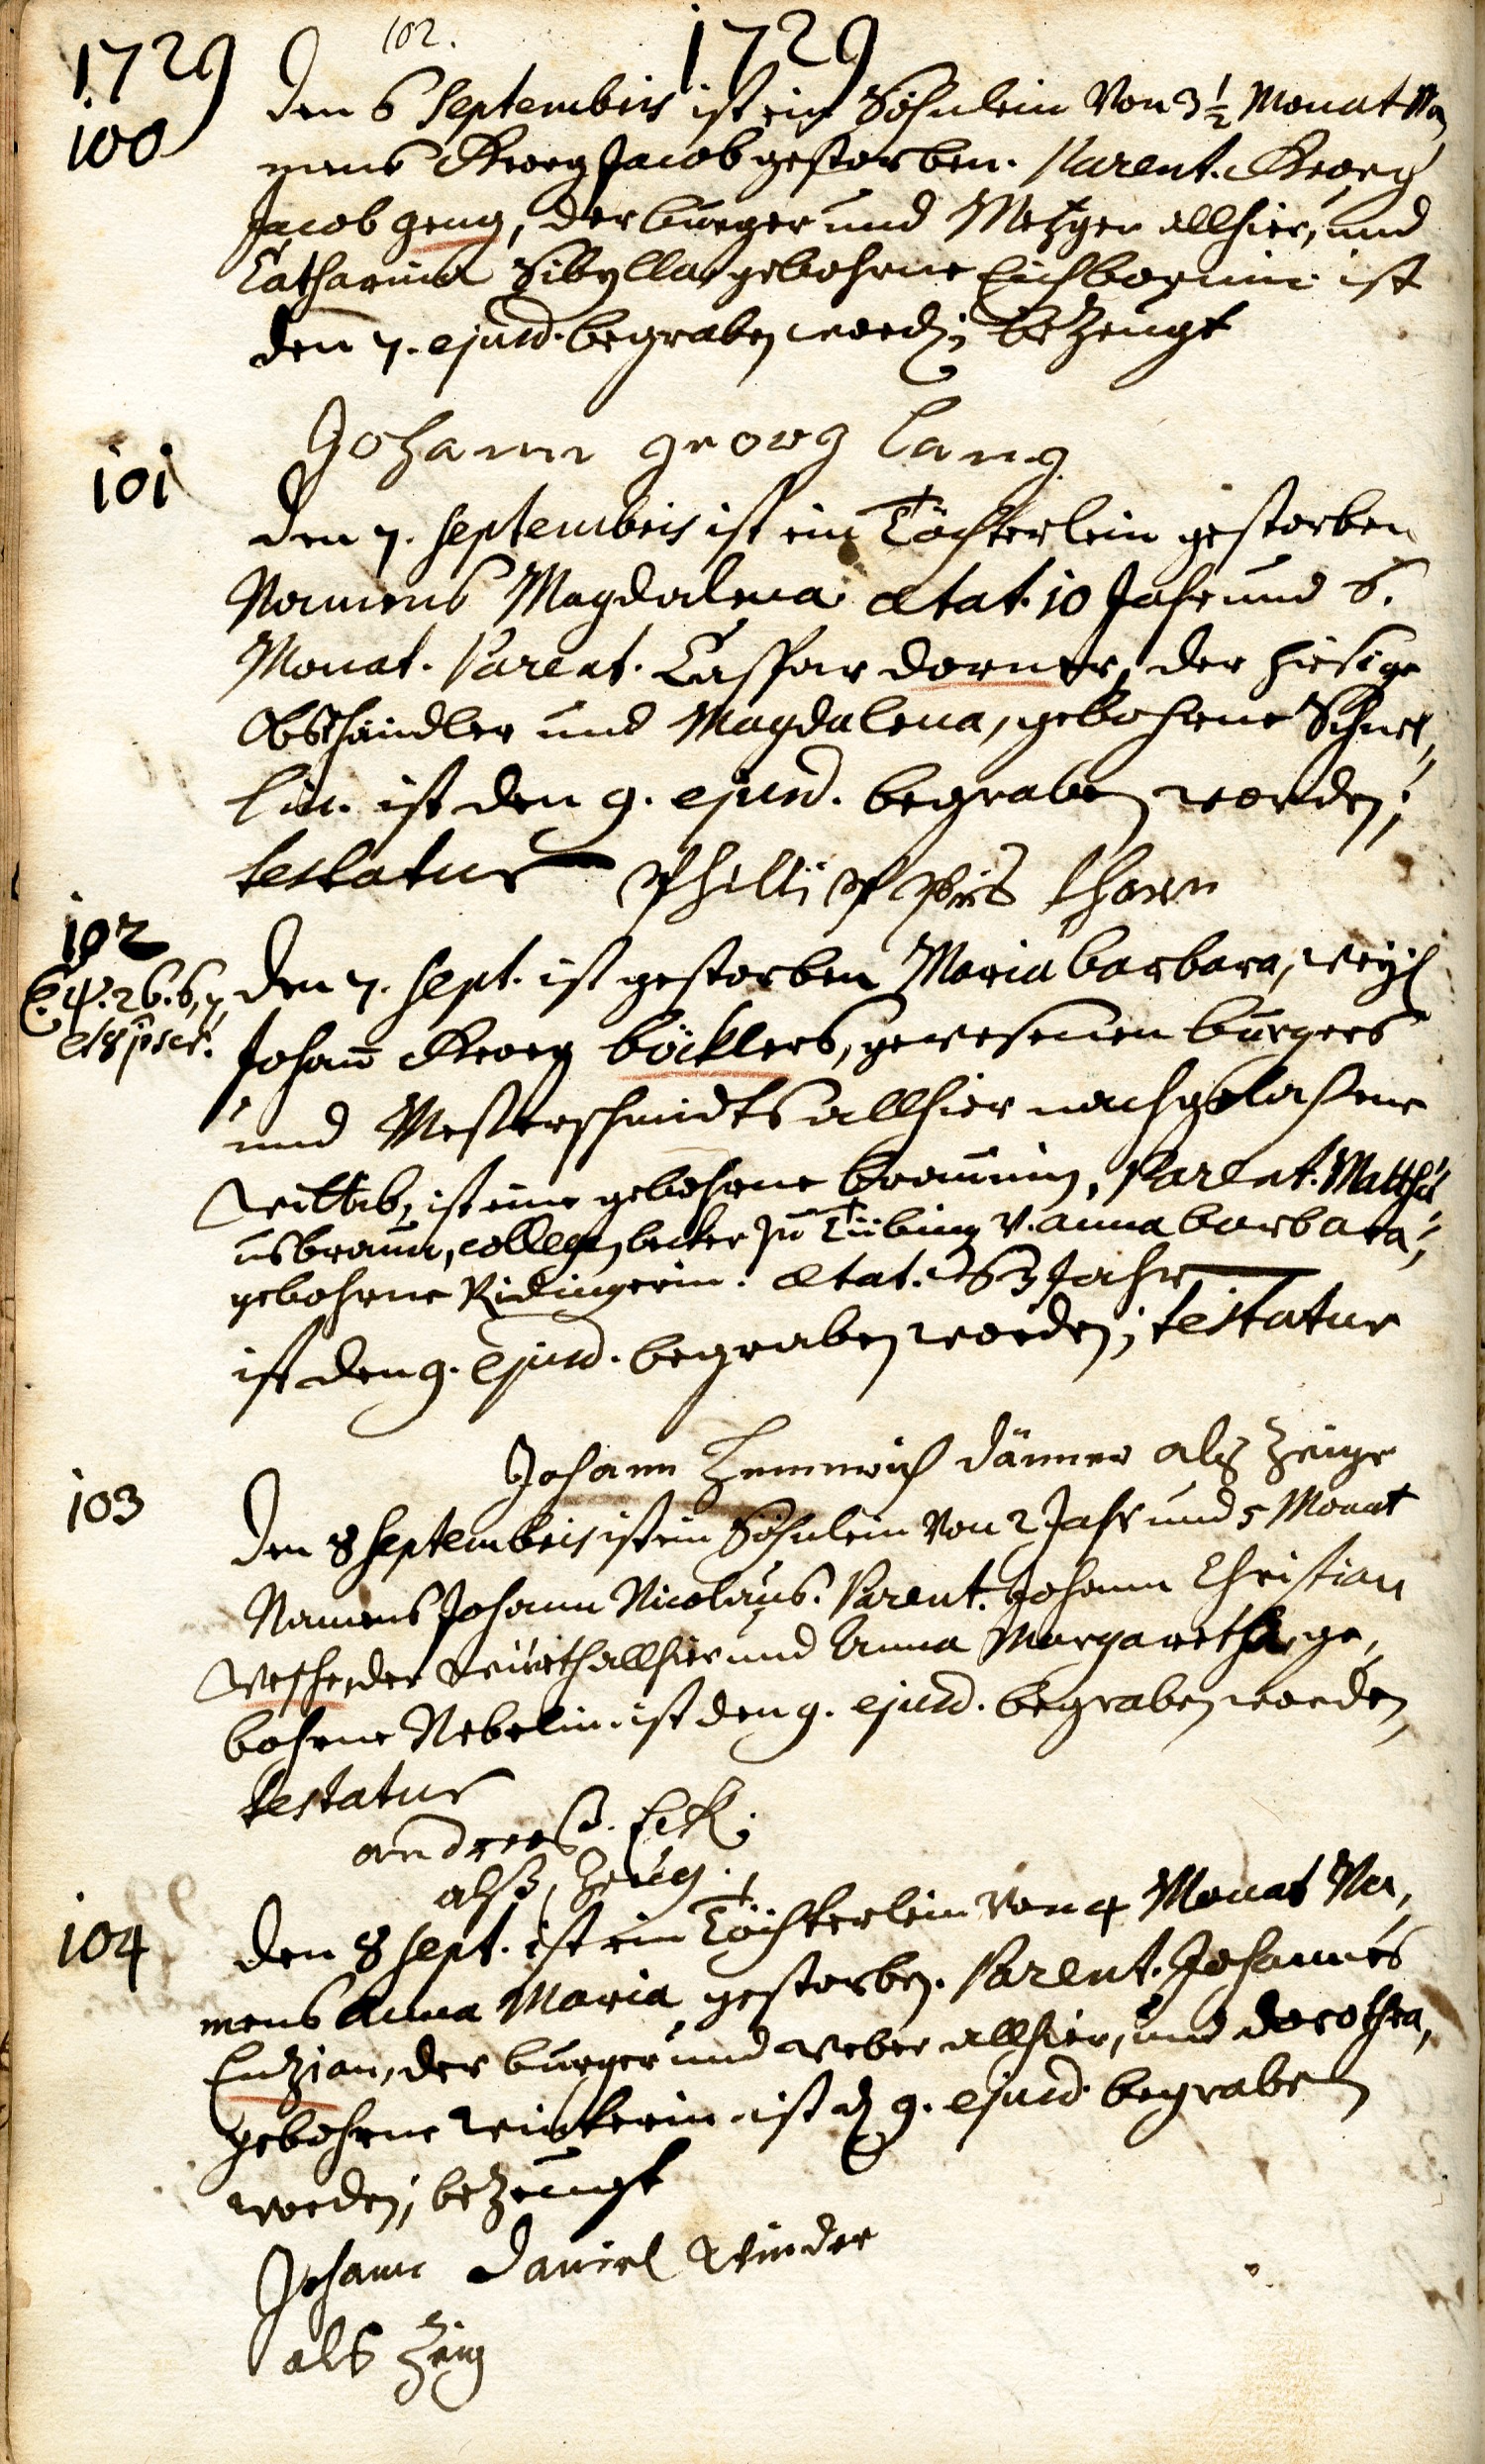 102.
1729 1729
100 Den 6 Septembris ist ein Söhnlein Von 3 1/2 Monat Na„
mens Georg Jacob gestorben. Parent. Georg
Jacob geng, der burger und Metzger allhier, und
Catharina Sibylla, gebohrne Eichbornin. ist
den 7. ejusd. begraben word; bezeugt
Johann georg lang
101
Den 7. Septembris ist ein Töchterlein gestorben
Namens Magdalena ætat. 10 Jahr und 6.
Monat. Parent. Caspar dorner, der hiesige
Obsthändler und Magdalena, gebohrne Schnel„
lin. ist den 9. ejusd. begraben worden;
testatur Phillippus Thorn
102
ψ. 26. 6, 7, Den 7. Sept. ist gestorben Maria barbara, weyl
et 8 Johañ Georg böcklers, gewesenen burgers
und Messerschmidts allhier nachgelassene
Wittib, ist eine gebohrne braunin, Parent. Matthä„
us braun, becker zu Tübing v. anna barbara,
gebohrne Ridingerin. ætat. 63 Jahr
ist den 9. Ejusd. begraben worden; testatur
Johann Hemmrich dänner als Zeuge
103
Den 8 Septembris ist ein Söhnlein Von 2 Jahr und 5 Monat
Namens Johann Nicolaus. Parent. Johann Christian
Wesche, der Würth allhier und Anna Margaretha, ge„
bohrne Nebelin. ist den 9. ejusd. begraben worden,
testatur
andreeß. Eck.
alß Zeug.
104
Den 8 Sept. ist ein Töchterlein von 4 Monat Na„
mens Anna Maria gestorben. Parent. Johannes
Enzian, der burger und Weber allhier, und dorothea,
gebohrne Winterin. ist d 9. ejusd. begraben
worden; bezeugt
Johann Daniel Winder
als Zeug